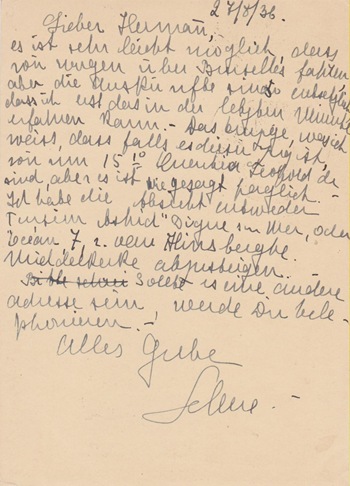 27/8/36.
Lieber Herman,
es ist sehr leicht möglich, dass
von wegen über Bruxelles fahren,
aber die Auskünfte sind
dass ich erst das in der letzten Minute
erfahren kann. - Das einzige, was ich
weiss, dass falls es
von um 15 10 Leopold de
sind, aber es ist wie gesagt fraglich. -
Ich habe die Absicht entweder
Pension "Astrid" Digue s. Mer, oder
Océan 7, r. van Hinsberghe
Middelkerke abzusteigen. -
Bitte Sollte es eine andere
adresse sein, werde Dir tele-
phonieren. -
Alles Gute